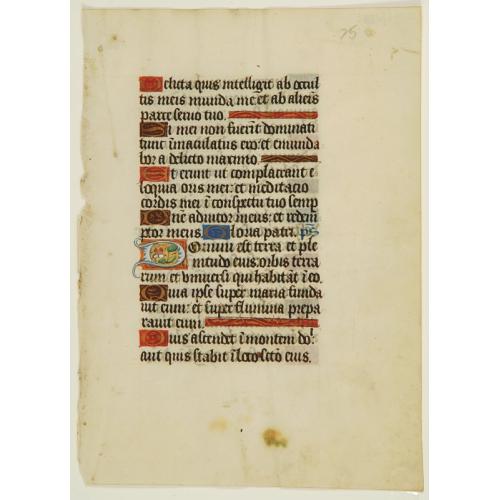 25
Delicta quis intelligit ab occul
tis meis munda me: et ab alienis
parce servo tuo.
Si mei non fuerīt dominati
tunc īmaculatus ero: et emunda
bor a delicto maximo.
Et erunt ut complaceant e
loquia oris mei: et meditacio
cordis mei ī conspectu tuo semp
Dn̄e adiutor meus: et redem
ptor meus. Gloria patri. ps
Domini est terra et ple
nitudo eius: orbis terra
rum et vniuersi qui habitāt ī eo.
Quia ipse super maria funda
uit eum: et super flumina prepa
rauit eum.
Quis ascendet ī montem do:
aut quis stabit ī loco scto eius.